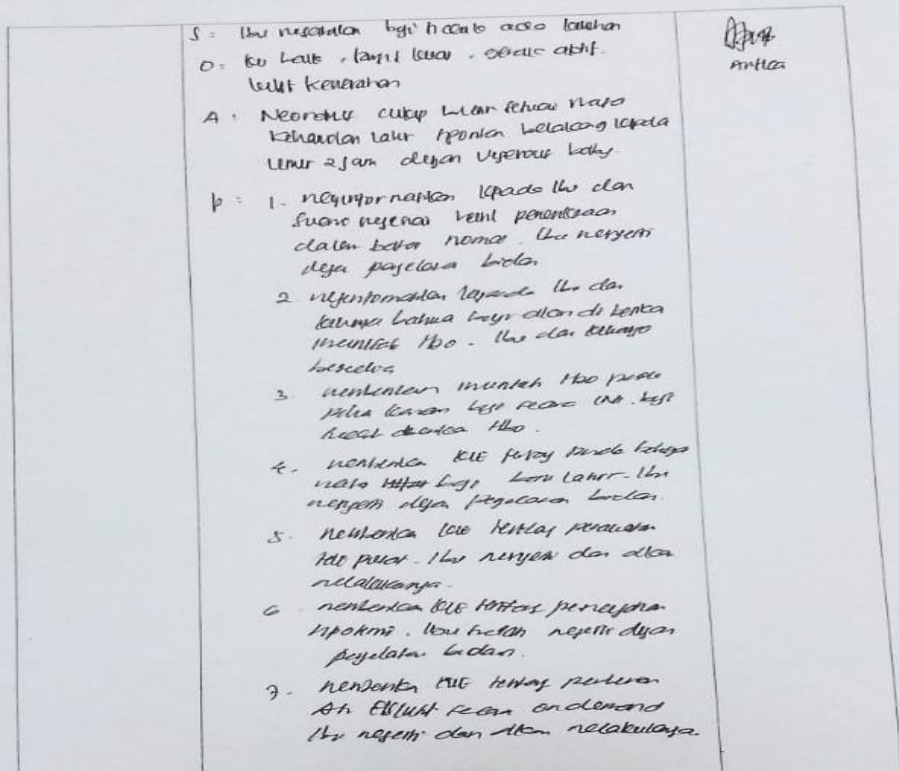 S : Ibu mengatakan bayi tidak ada keluhan
O : ku baik, tangis kuat, gerak aktif.
kulit kemerahan
A : Neonatus cukup bulan sesuai masa
kehamilan lahir spontan belakang kepala
umur 2 jam dengan vigorous baby.
P : 1. menginformasikan kepada Ibu dan
suami mengenai hasil pemeriksaan
dalam batas normal. Ibu mengerti
dengan penjelasan bidan
2. menginformasikan kepada Ibu dan
keluarga bahwa bayi akan di berika
Hb0. Ibu dan keluarga
bersedia
3. memberikan Hb0 pada
paha kanan bayi secara IM. bayi
Hb0.
4. memberika KIE tentang tanda bahaya
bayi baru lahir. Ibu
mengerti dengan penjelasan bidan.
5. memberika KIE tentang perawatan
tali pusat. Ibu mengerti dan akan
melakukanya.
6. memberika KIE tentang pencegahan
hipotermi. Ibu mengerti dengan
penjelasan bidan.
7. memberika KIE tentang pemberian
ASI Eksklusif secara on demand
Ibu mengerti dan akan melakukanya.
Artica